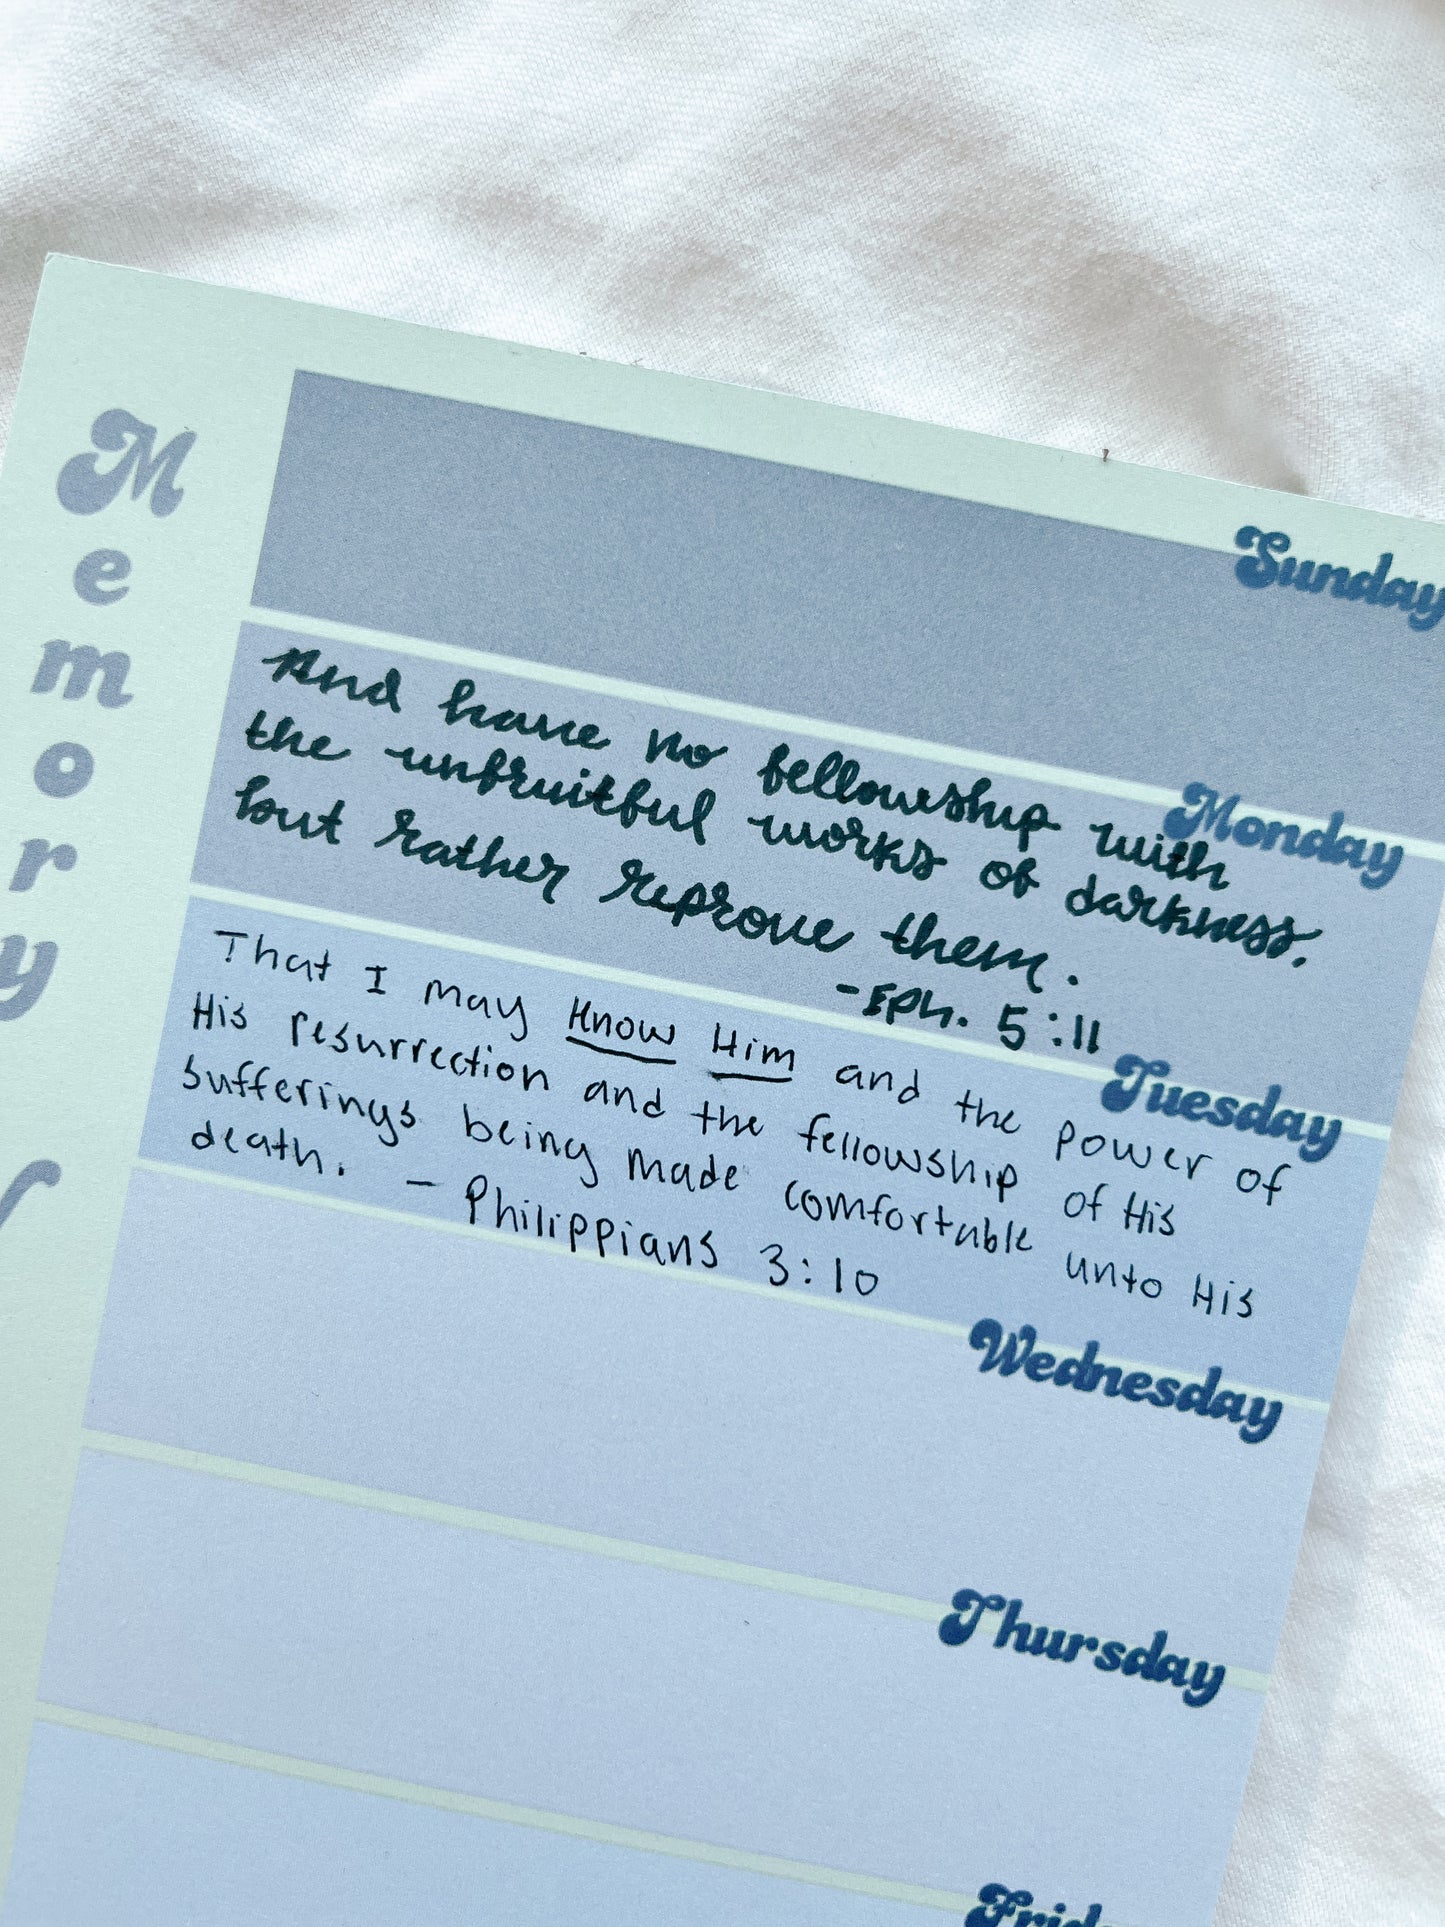 Memory V
Sunday
Monday
And have no fellowship with
the unfruitful works of darkness,
but rather reprove them.
-Eph. 5:11
Tuesday
That I may Know Him and the power of
His resurrection and the fellowship of His
sufferings being made comfortable unto His
death. - Philippians 3:10
Wednesday
Thursday